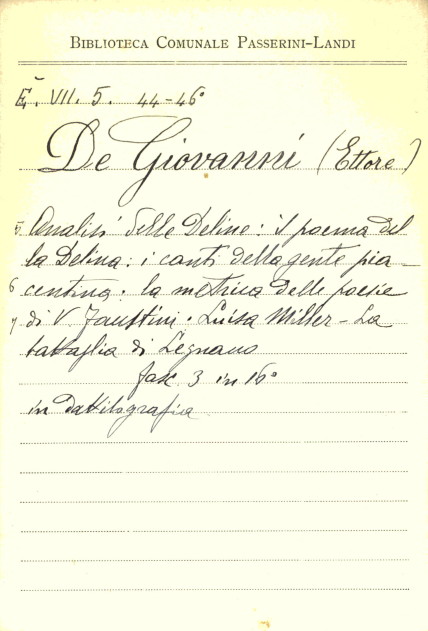 BIBLIOTECA COMUNALE PASSERINI-LANDI
Ě. VII. 5. 44-46°
De Giovanni (Ettore)
5 Analisi delle Deline: il poema del
la Delina: i canti della gente pia-
6 centina. la metrica delle poesie
7 di V. Faustini. Luisa Miller - La
battaglia di Legnano
fasc. 3 in 16°
in dattilografia